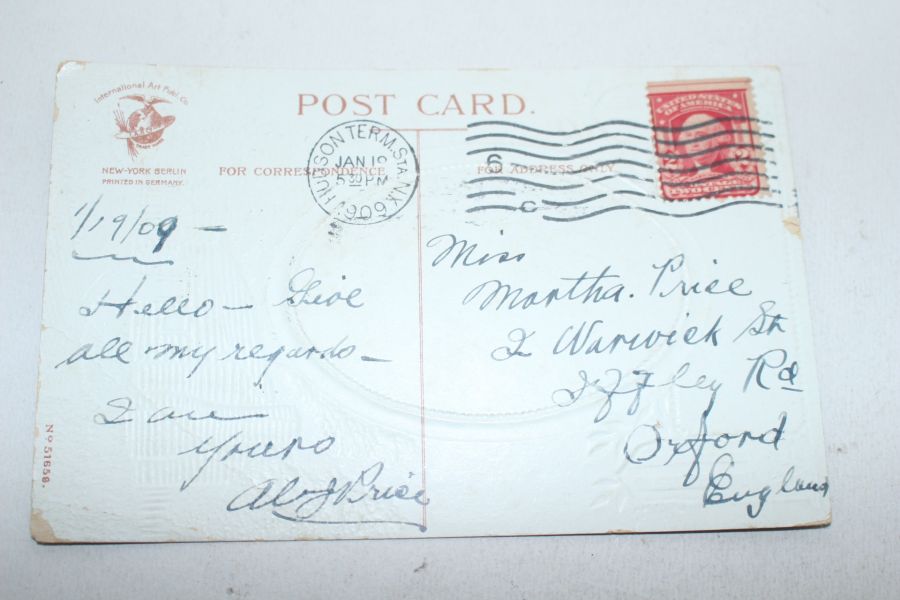 International Art Publ. Co.
NEW-YORK BERLIN
PRINTED IN GERMANY.
POST CARD.
FOR CORRESPONDENCE
FOR ADDRESS ONLY
HUDSON TERM. STA. N.Y.
JAN 19
5 30 PM
1909
6
C
UNITED STATES
OF AMERICA
2 2
TWO CENTS
1/19/09 —
Hello — Give
all my regards —
I am
Yours
Alex J Price
Miss
Martha. Price
2 Warwick St
Iffley Rd
Oxford
England
No 51658.